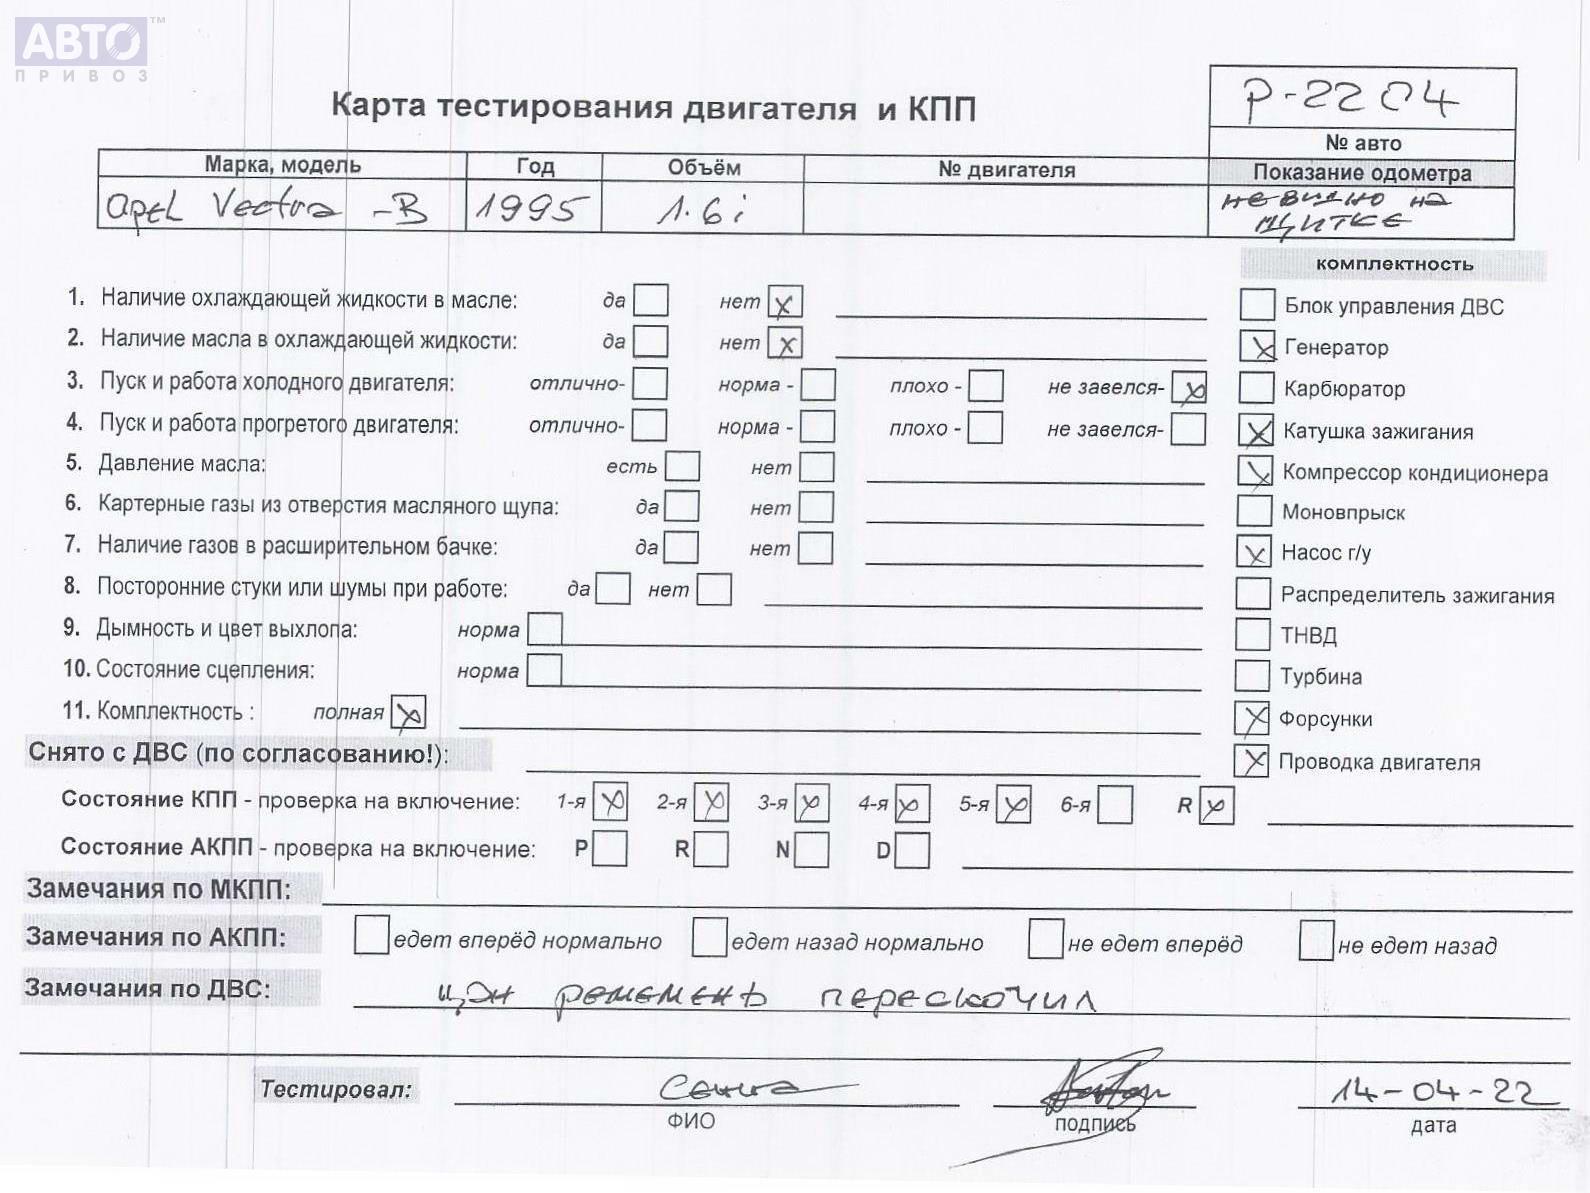 АВТО™
ПРИВОЗ
Карта тестирования двигателя и КПП
Р-2204
№ авто
Марка, модель Год Объём № двигателя Показание одометра
Opel Vectra -B 1995 1.6i не видно на
щитке
комплектность
1. Наличие охлаждающей жидкости в масле: да нет x
Блок управления ДВС
2. Наличие масла в охлаждающей жидкости: да нет x
x Генератор
3. Пуск и работа холодного двигателя: отлично- норма - плохо - не завелся- x
Карбюратор
4. Пуск и работа прогретого двигателя: отлично- норма - плохо - не завелся-
x Катушка зажигания
5. Давление масла: есть нет
x Компрессор кондиционера
6. Картерные газы из отверстия масляного щупа: да нет
Моновпрыск
7. Наличие газов в расширительном бачке: да нет
x Насос г/у
8. Посторонние стуки или шумы при работе: да нет
Распределитель зажигания
9. Дымность и цвет выхлопа: норма
ТНВД
10. Состояние сцепления: норма
Турбина
11. Комплектность : полная x
x Форсунки
Снято с ДВС (по согласованию!):
x Проводка двигателя
Состояние КПП - проверка на включение: 1-я x 2-я x 3-я x 4-я x 5-я x 6-я R x
Состояние АКПП - проверка на включение: P R N D
Замечания по МКПП:
Замечания по АКПП: едет вперёд нормально едет назад нормально не едет вперёд не едет назад
Замечания по ДВС: ременень перескочил
Тестировал: 14-04-22
ФИО подпись дата